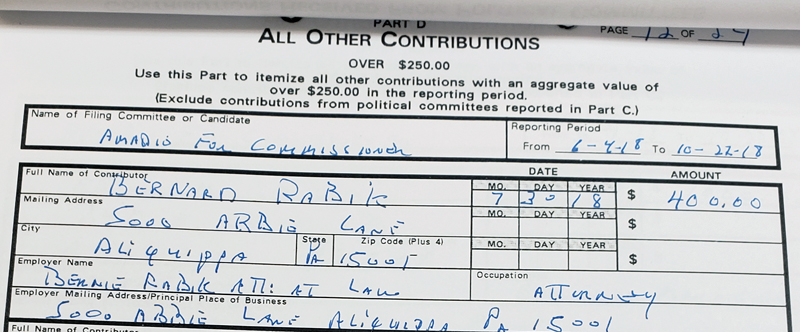 PART D
PAGE 12 OF 24
ALL OTHER CONTRIBUTIONS
OVER $250.00
Use this Part to itemize all other contributions with an aggregate value of
over $250.00 in the reporting period.
(Exclude contributions from political committees reported in Part C.)
Name of Filing Committee or Candidate
AMADIO FOR COMMISSIONER
Reporting Period
From 6-4-18 To 10-22-18
DATE
AMOUNT
Full Name of Contributor
BERNARD RABIK
MO. DAY YEAR
7 30 18
$ 400.00
Mailing Address
5000 ARBIE LANE
MO. DAY YEAR
$
City
ALIQUIPPA
State
PA
Zip Code (Plus 4)
15001
MO. DAY YEAR
$
Employer Name
BERNIE RABIK ATT: AT LAW
Occupation
ATTURNEY
Employer Mailing Address/Principal Place of Business
5000 ABBIE LANE ALIQUIPPA PA 15001
Full Name of Contributor